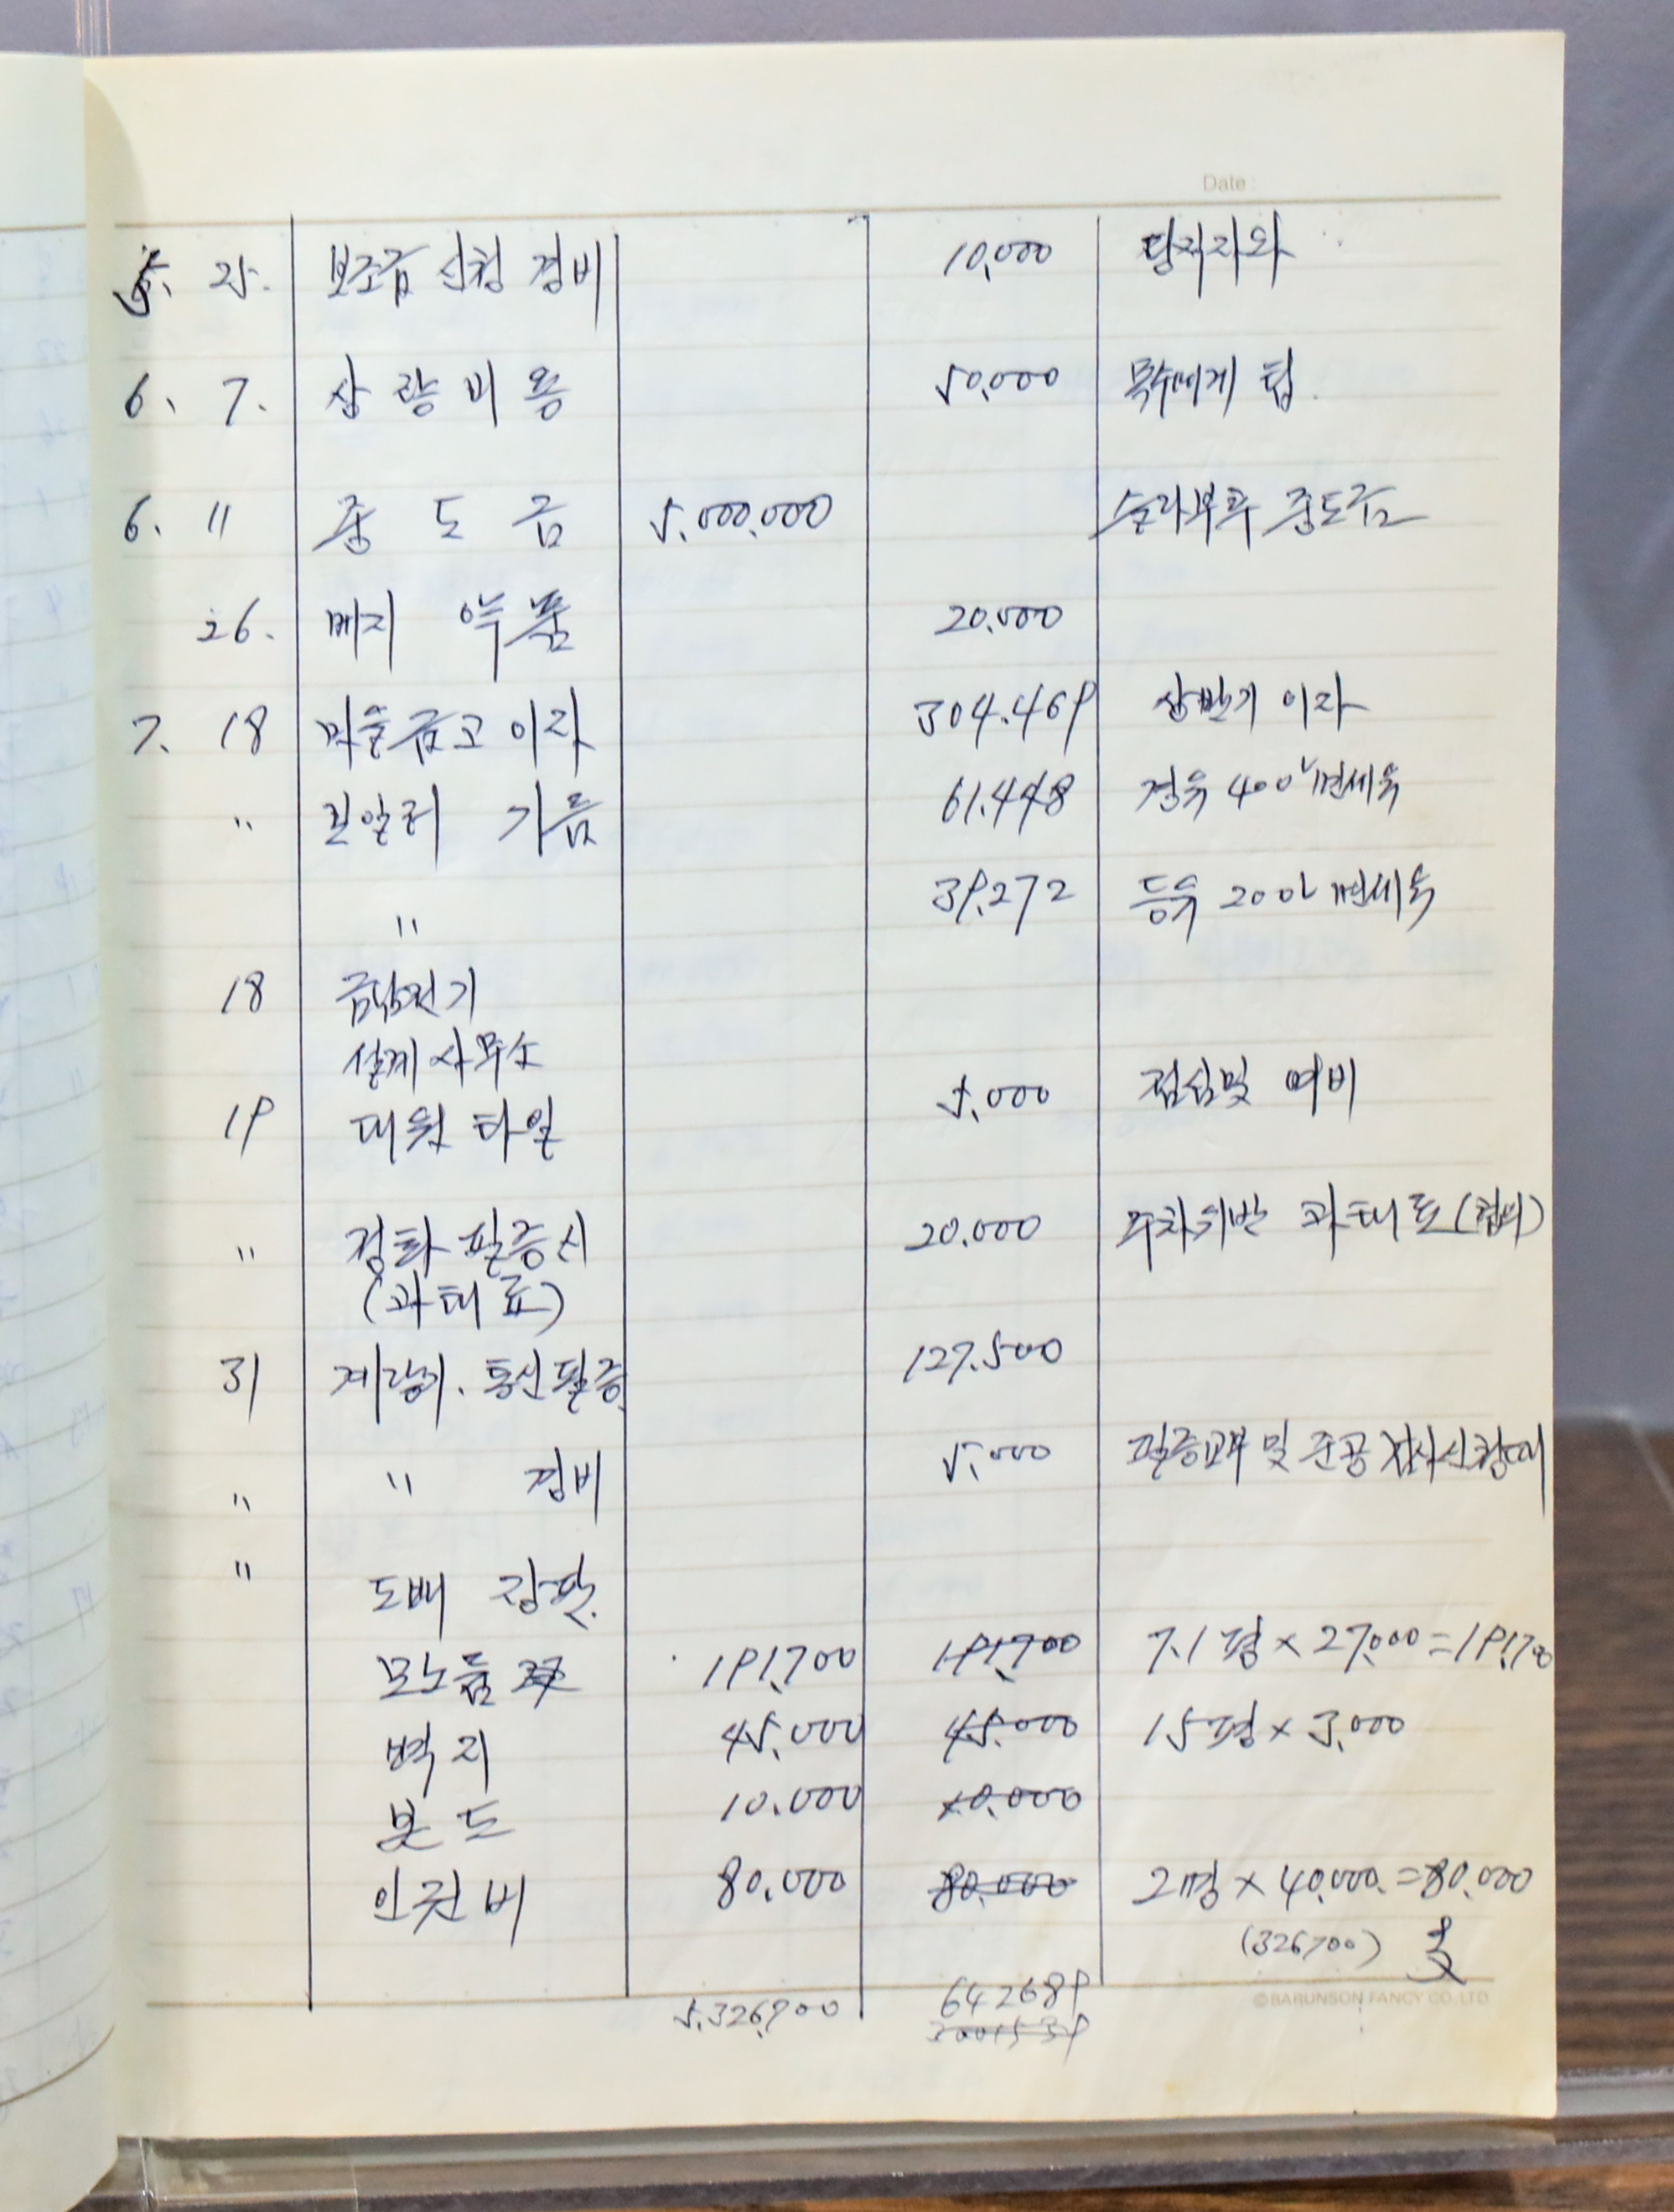 Date :
5. 25. 보조금 신청 경비 10,000 당직자와
6. 7. 상량비용 50,000 목수에게 팁.
6. 〃 중도금 5.000.000 슬라브후 중도금
26. 메지 약품 20.000
7. 18 마을금고 이자 304.469 상반기 이자
〃 보일러 기름 61.448 경유 400L 면세유
〃 39.272 등유 200L 면세유
18 금남전기
설계사무소
5.000 점심및 여비
19 대원타일
〃 정화필증시 20.000 주차위반 과태료
(과태료)
31 계량기. 통신필증. 127.500
〃 〃 경비 5.000 필증교부 및 준공검사신청때
〃 도배 장판.
모노륨 191,700 191,700 7.1평 × 27,000 = 191,700
벽지 45.000 45.000 15평 × 3,000
본드 10.000 10.000
인건비 80.000 80.000 2명 × 40,000. = 80,000
(326700)
5.326,700 642689
©BARUNSON FANCY CO.,LTD.